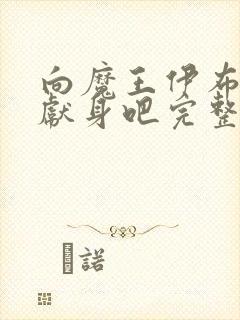 向魔王伊布
獻身吧完整
諾